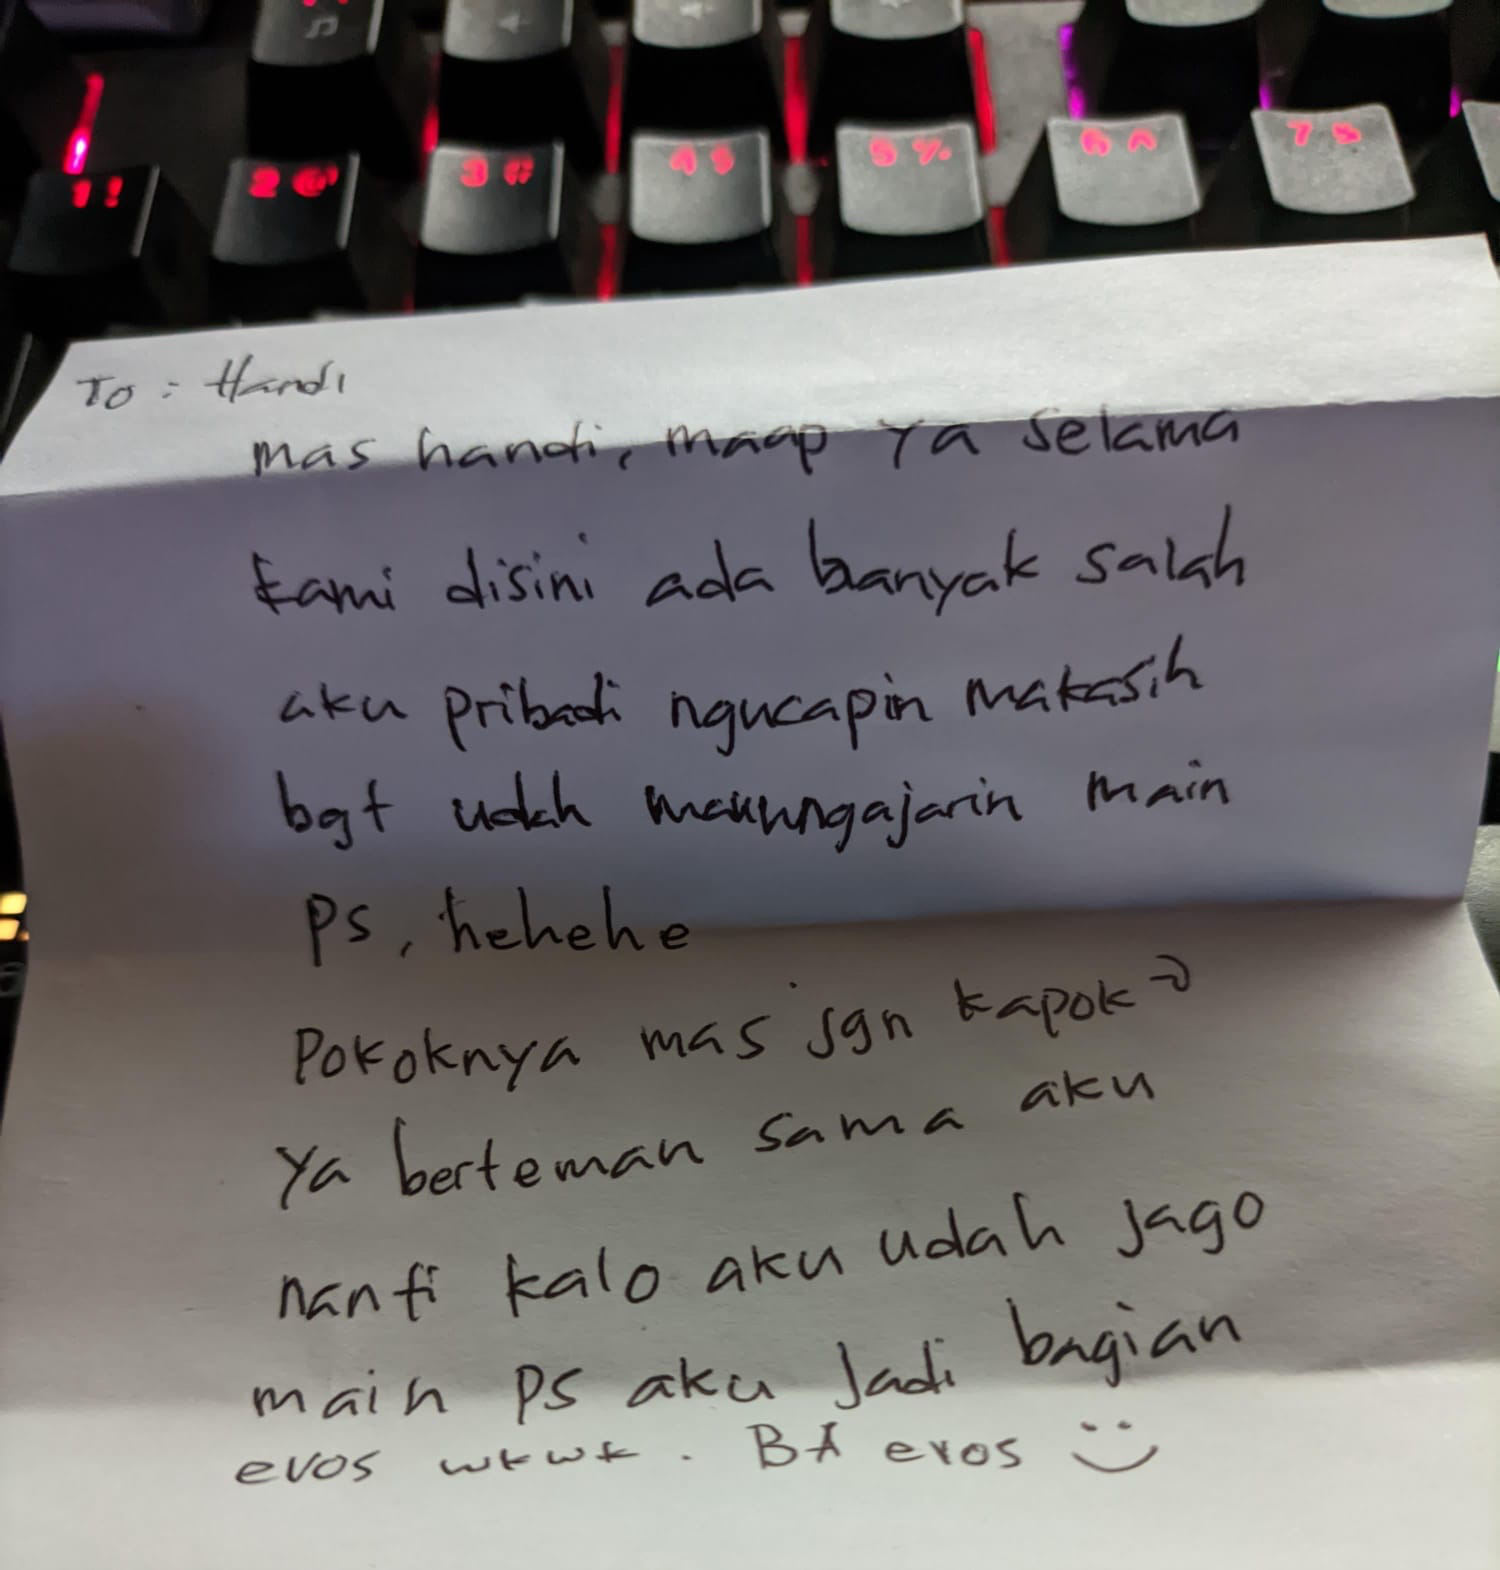 1! 2@ 3# 4$ 5% 6^ 7&
To : Handi
mas handi, maap ya selama
kami disini ada banyak salah
aku pribadi ngucapin makasih
bgt udah mau ngajarin main
PS, hehehe
Pokoknya mas jgn kapok2
ya berteman sama aku
nanti kalo aku udah jago
main PS aku jadi bagian
evos wkwk. BA evos :)